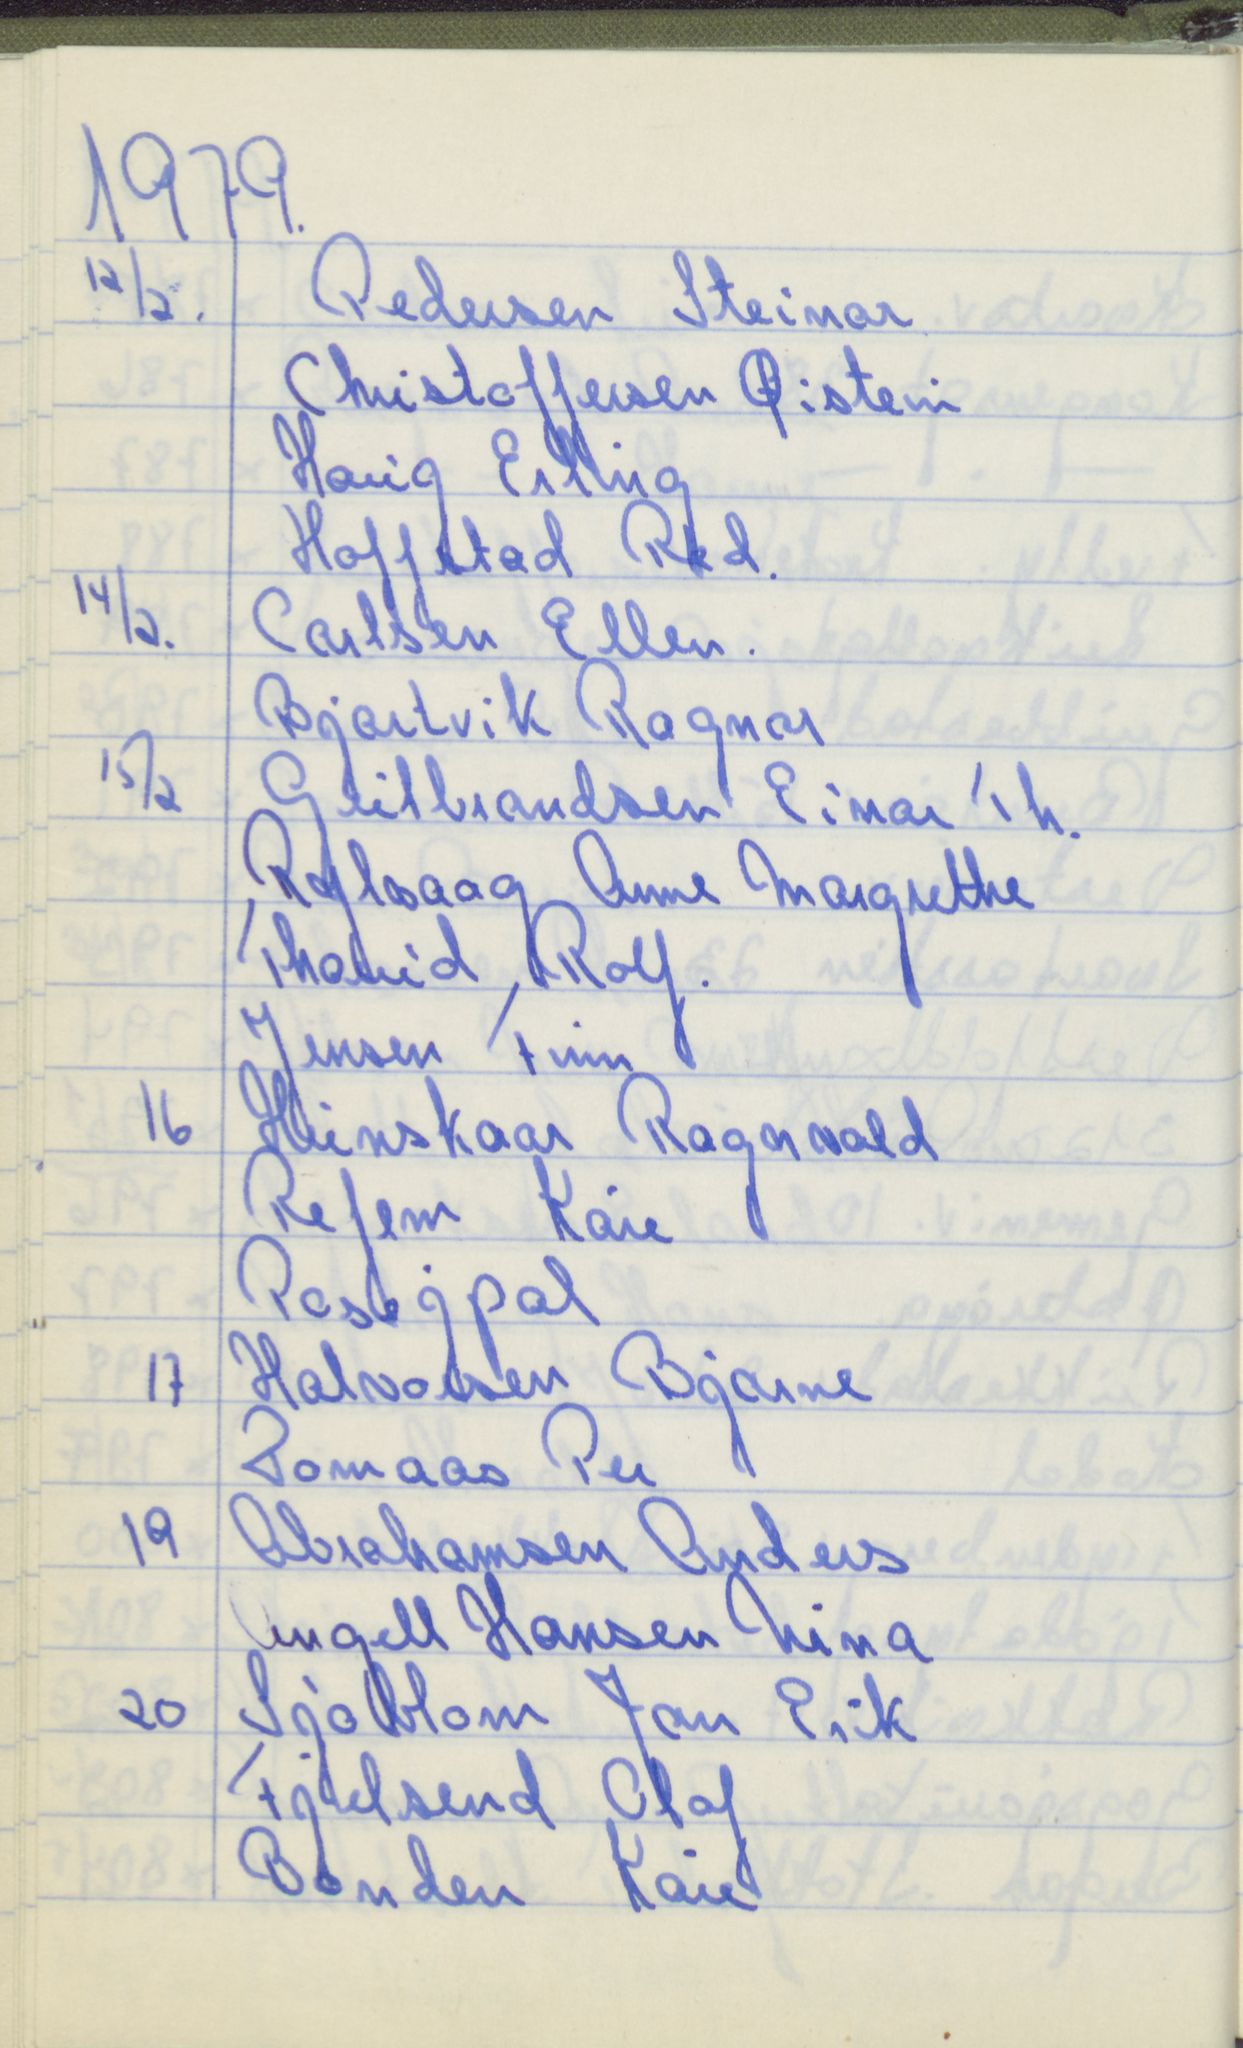 1979.
12/2. Pedersen Steinar
Christoffersen Øistein
Hauig Erling
Hoffstad Rod.
14/2. Carlsen Ellen.
Bjartvik Ragnar
15/2 Gulbrandsen Einar Th.
Rolvaag Anne Margrethe
Rolf.
Jensen Finn
16 Ragnvald
Refem Kåre
17 Halvorsen Bjarne
Per
19 Abrahamsen Anders
Angell Hansen Nina
20 Sjøblom Jan Erik
Olaf
Bonden Kåre